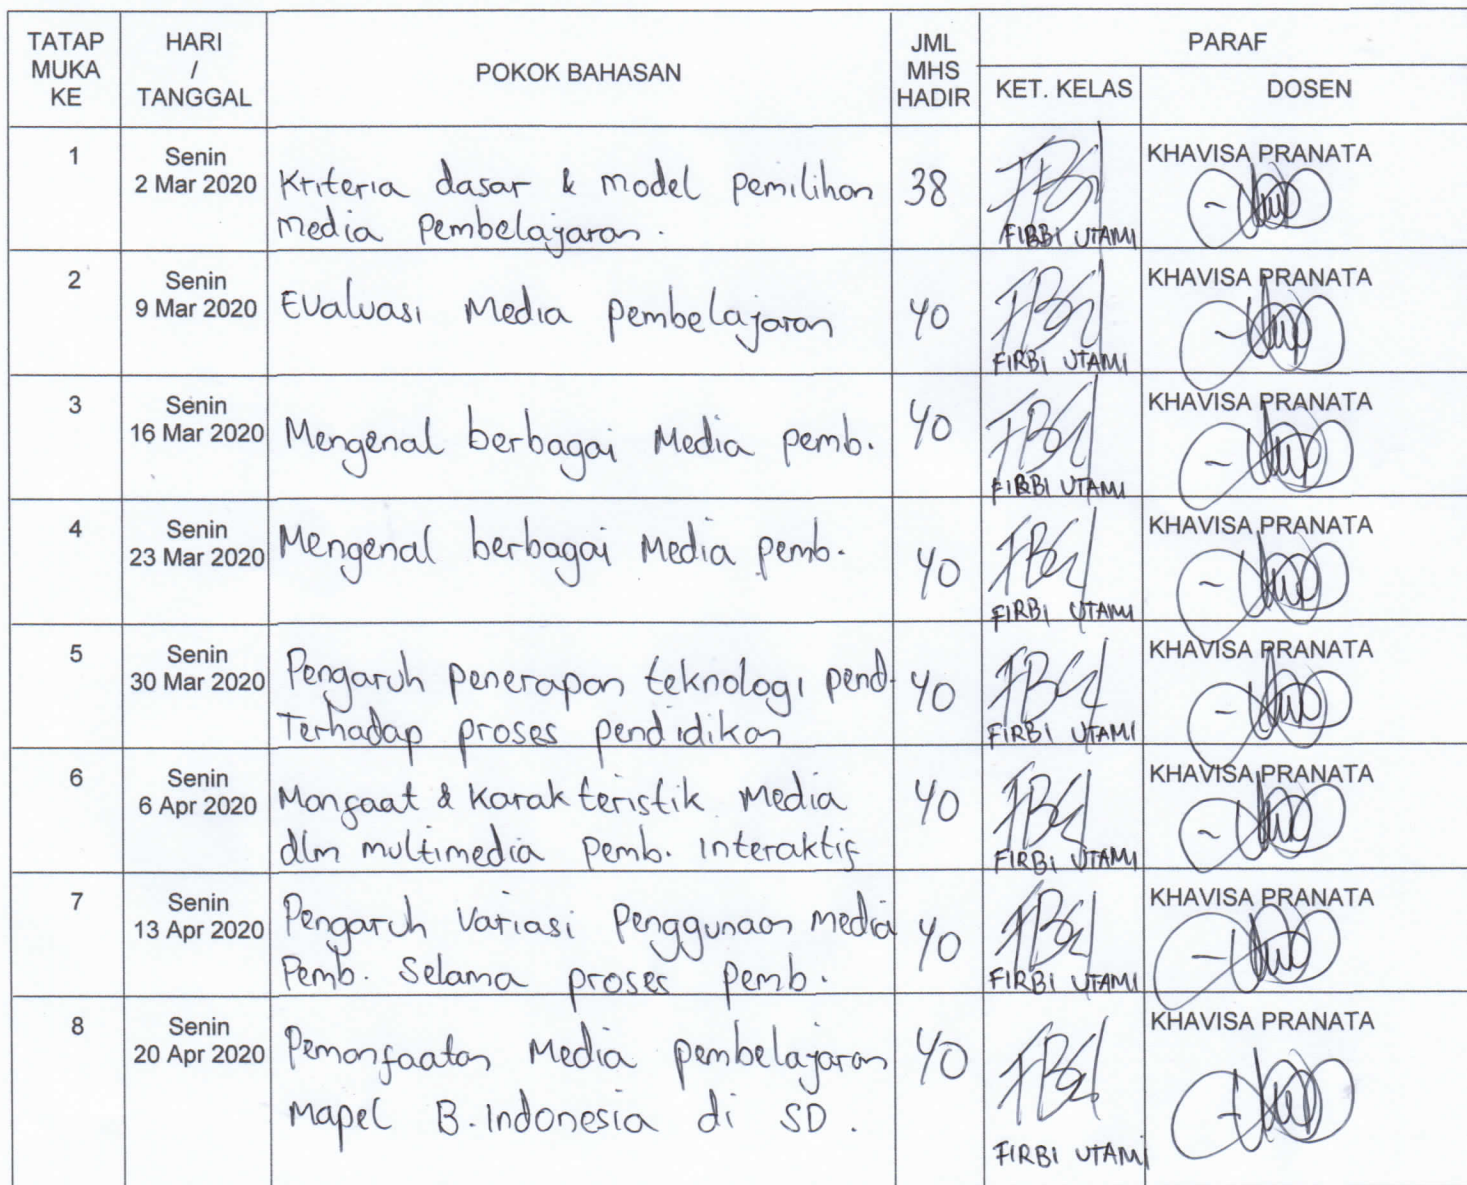 TATAP MUKA KE
HARI / TANGGAL
POKOK BAHASAN
JML MHS HADIR
PARAF
KET. KELAS
DOSEN
1
Senin
2 Mar 2020
Kriteria dasar & model pemilihan
media pembelajaran.
38
FIRBI UTAMI
KHAVISA PRANATA
2
Senin
9 Mar 2020
Evaluasi Media pembelajaran
40
FIRBI UTAMI
KHAVISA PRANATA
3
Senin
16 Mar 2020
Mengenal berbagai Media pemb.
40
FIRBI UTAMI
KHAVISA PRANATA
4
Senin
23 Mar 2020
Mengenal berbagai Media pemb.
40
FIRBI UTAMI
KHAVISA PRANATA
5
Senin
30 Mar 2020
Pengaruh penerapan teknologi pend.
Terhadap proses pendidikan
40
FIRBI UTAMI
KHAVISA PRANATA
6
Senin
6 Apr 2020
Manfaat & Karakteristik Media
dlm multimedia pemb. interaktif
40
FIRBI UTAMI
KHAVISA PRANATA
7
Senin
13 Apr 2020
Pengaruh Variasi penggunaan media
Pemb. Selama proses pemb.
40
FIRBI UTAMI
KHAVISA PRANATA
8
Senin
20 Apr 2020
Pemanfaatan Media pembelajaran
Mapel B. Indonesia di SD.
40
FIRBI UTAMI
KHAVISA PRANATA